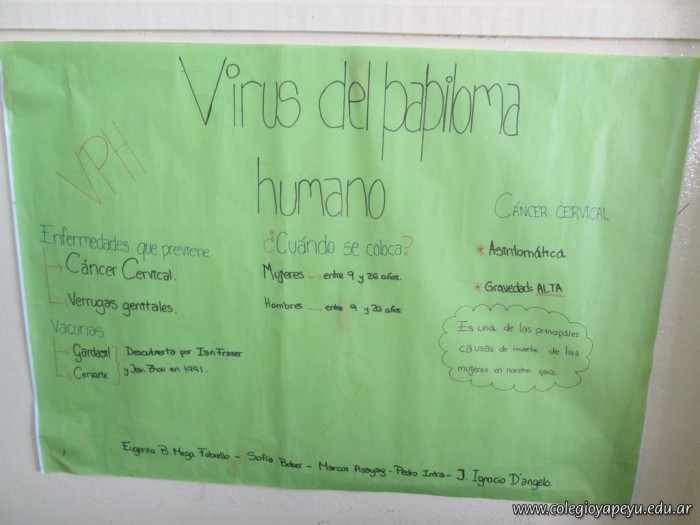 Virus del papiloma
humano
VPH
Enfermedades que previene
Cáncer Cervical.
Verrugas genitales.
Vacunas
Gardasil
Cervarix
Descubierta por Ian Fraser
y Jian Zhou en 1991.
¿Cuándo se coloca?
Mujeres → entre 9 y 26 años.
Hombres → entre 9 y 26 años.
CÁNCER CERVICAL
* Asintomática
* Gravedad: ALTA
Es una de las principales
causas de muerte de las
mujeres en nuestro país.
Eugenia B. Mega Fabiello - Sofía Bober - Marcos Asayag - Pedro Intra - J. Ignacio D'angelo.
www.colegioyapeyu.edu.ar